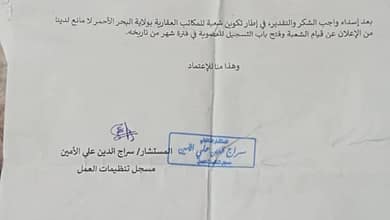 بعد إسداء واجب الشكر والتقدير، في إطار تكوين شعبة للمكاتب العقارية بولاية البحر الأحمر لا مانع لدينا
من الإعلان عن قيام الشعبة وفتح باب التسجيل للعضوية في فترة شهر من تاريخه.
وهذا منا للإعتماد
المستشار/ سراج الدين علي الأمين
مسجل تنظيمات العمل
سراج الدين علي الأمين